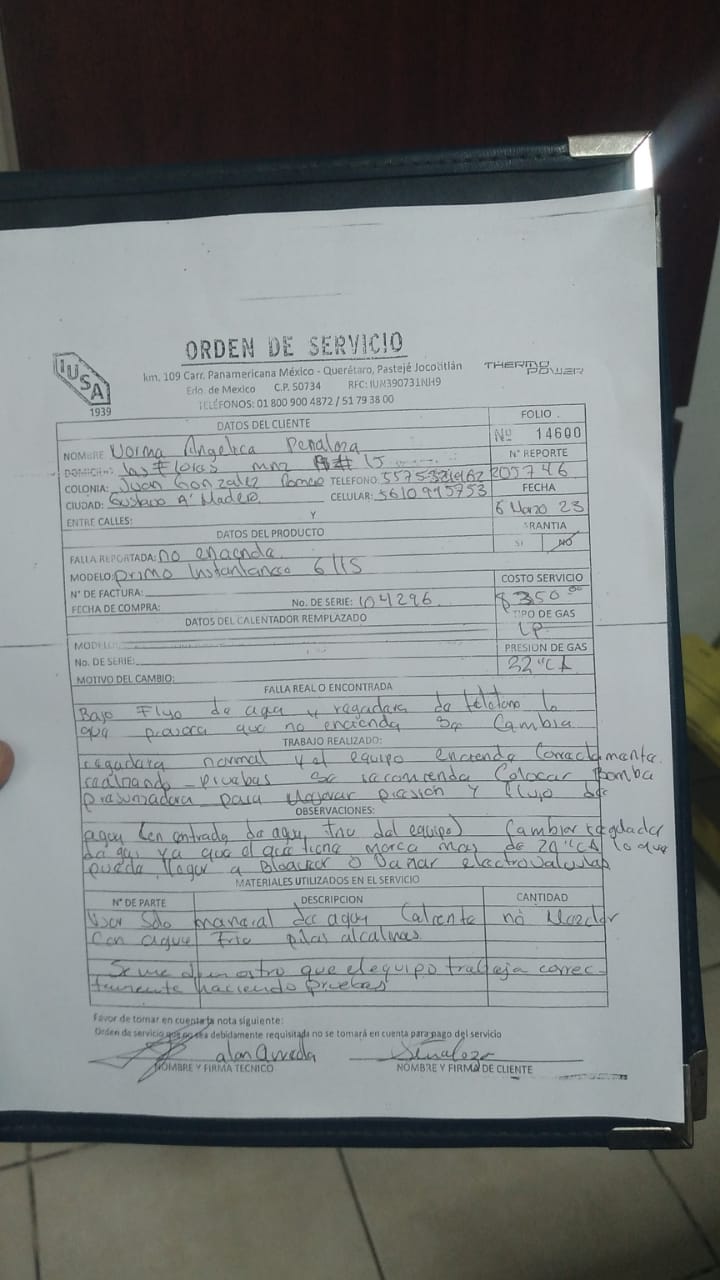 ORDEN DE SERVICIO
IUSA
1939
km. 109 Carr. Panamericana México - Querétaro, Pastejé Jocotitlán
THERMO POWER
Edo. de Mexico C.P. 50734 RFC: IUM390731NH9
TELÉFONOS: 01 800 900 4872 / 51 79 38 00
DATOS DEL CLIENTE
FOLIO
Nº 14600
NOMBRE Norma Angelica Penaloza
N° REPORTE
DOMICILIO: las Flores mnz 15
205746
COLONIA: Juan Gonzalez Romero TELEFONO:
FECHA
CIUDAD: Gustavo A Madero CELULAR: 5610995753
6 Marzo 23
ENTRE CALLES: Y
DATOS DEL PRODUCTO
GARANTIA
SI NO
FALLA REPORTADA: no encende
MODELO: primo Instantaneo 6 lts
COSTO SERVICIO
N° DE FACTURA:
$350.00
FECHA DE COMPRA: No. DE SERIE: 104296
TIPO DE GAS
DATOS DEL CALENTADOR REMPLAZADO
LP
MODELO:
PRESION DE GAS
No. DE SERIE:
32 "CA
MOTIVO DEL CAMBIO:
FALLA REAL O ENCONTRADA
Bajo Flujo de agua y regadera de telefono lo
que provoca que no encienda se Cambia
TRABAJO REALIZADO:
regadera normal y el equipo enciende Correctamente
realizando pruebas se recomienda Colocar Bomba
presurizadora para Mejorar presion y flujo de
OBSERVACIONES:
agua (en entrada de agua fria del equipo) Cambiar regulador
de gas ya que el que tiene marca mas de 29 "CA lo que
puede llegar a Bloquear o Danar electrovalvulas
MATERIALES UTILIZADOS EN EL SERVICIO
N° DE PARTE DESCRIPCION CANTIDAD
Usar Solo maneral de agua Caliente no Mezclar
Con agua Fria pilas alcalinas
Se me demostro que el equipo trabaja correc-
tamente haciendo pruebas
Favor de tomar en cuenta la nota siguiente:
Orden de servicio que no sea debidamente requisitada no se tomará en cuenta para pago del servicio
alan Penaloza
NOMBRE Y FIRMA TECNICO NOMBRE Y FIRMA DE CLIENTE